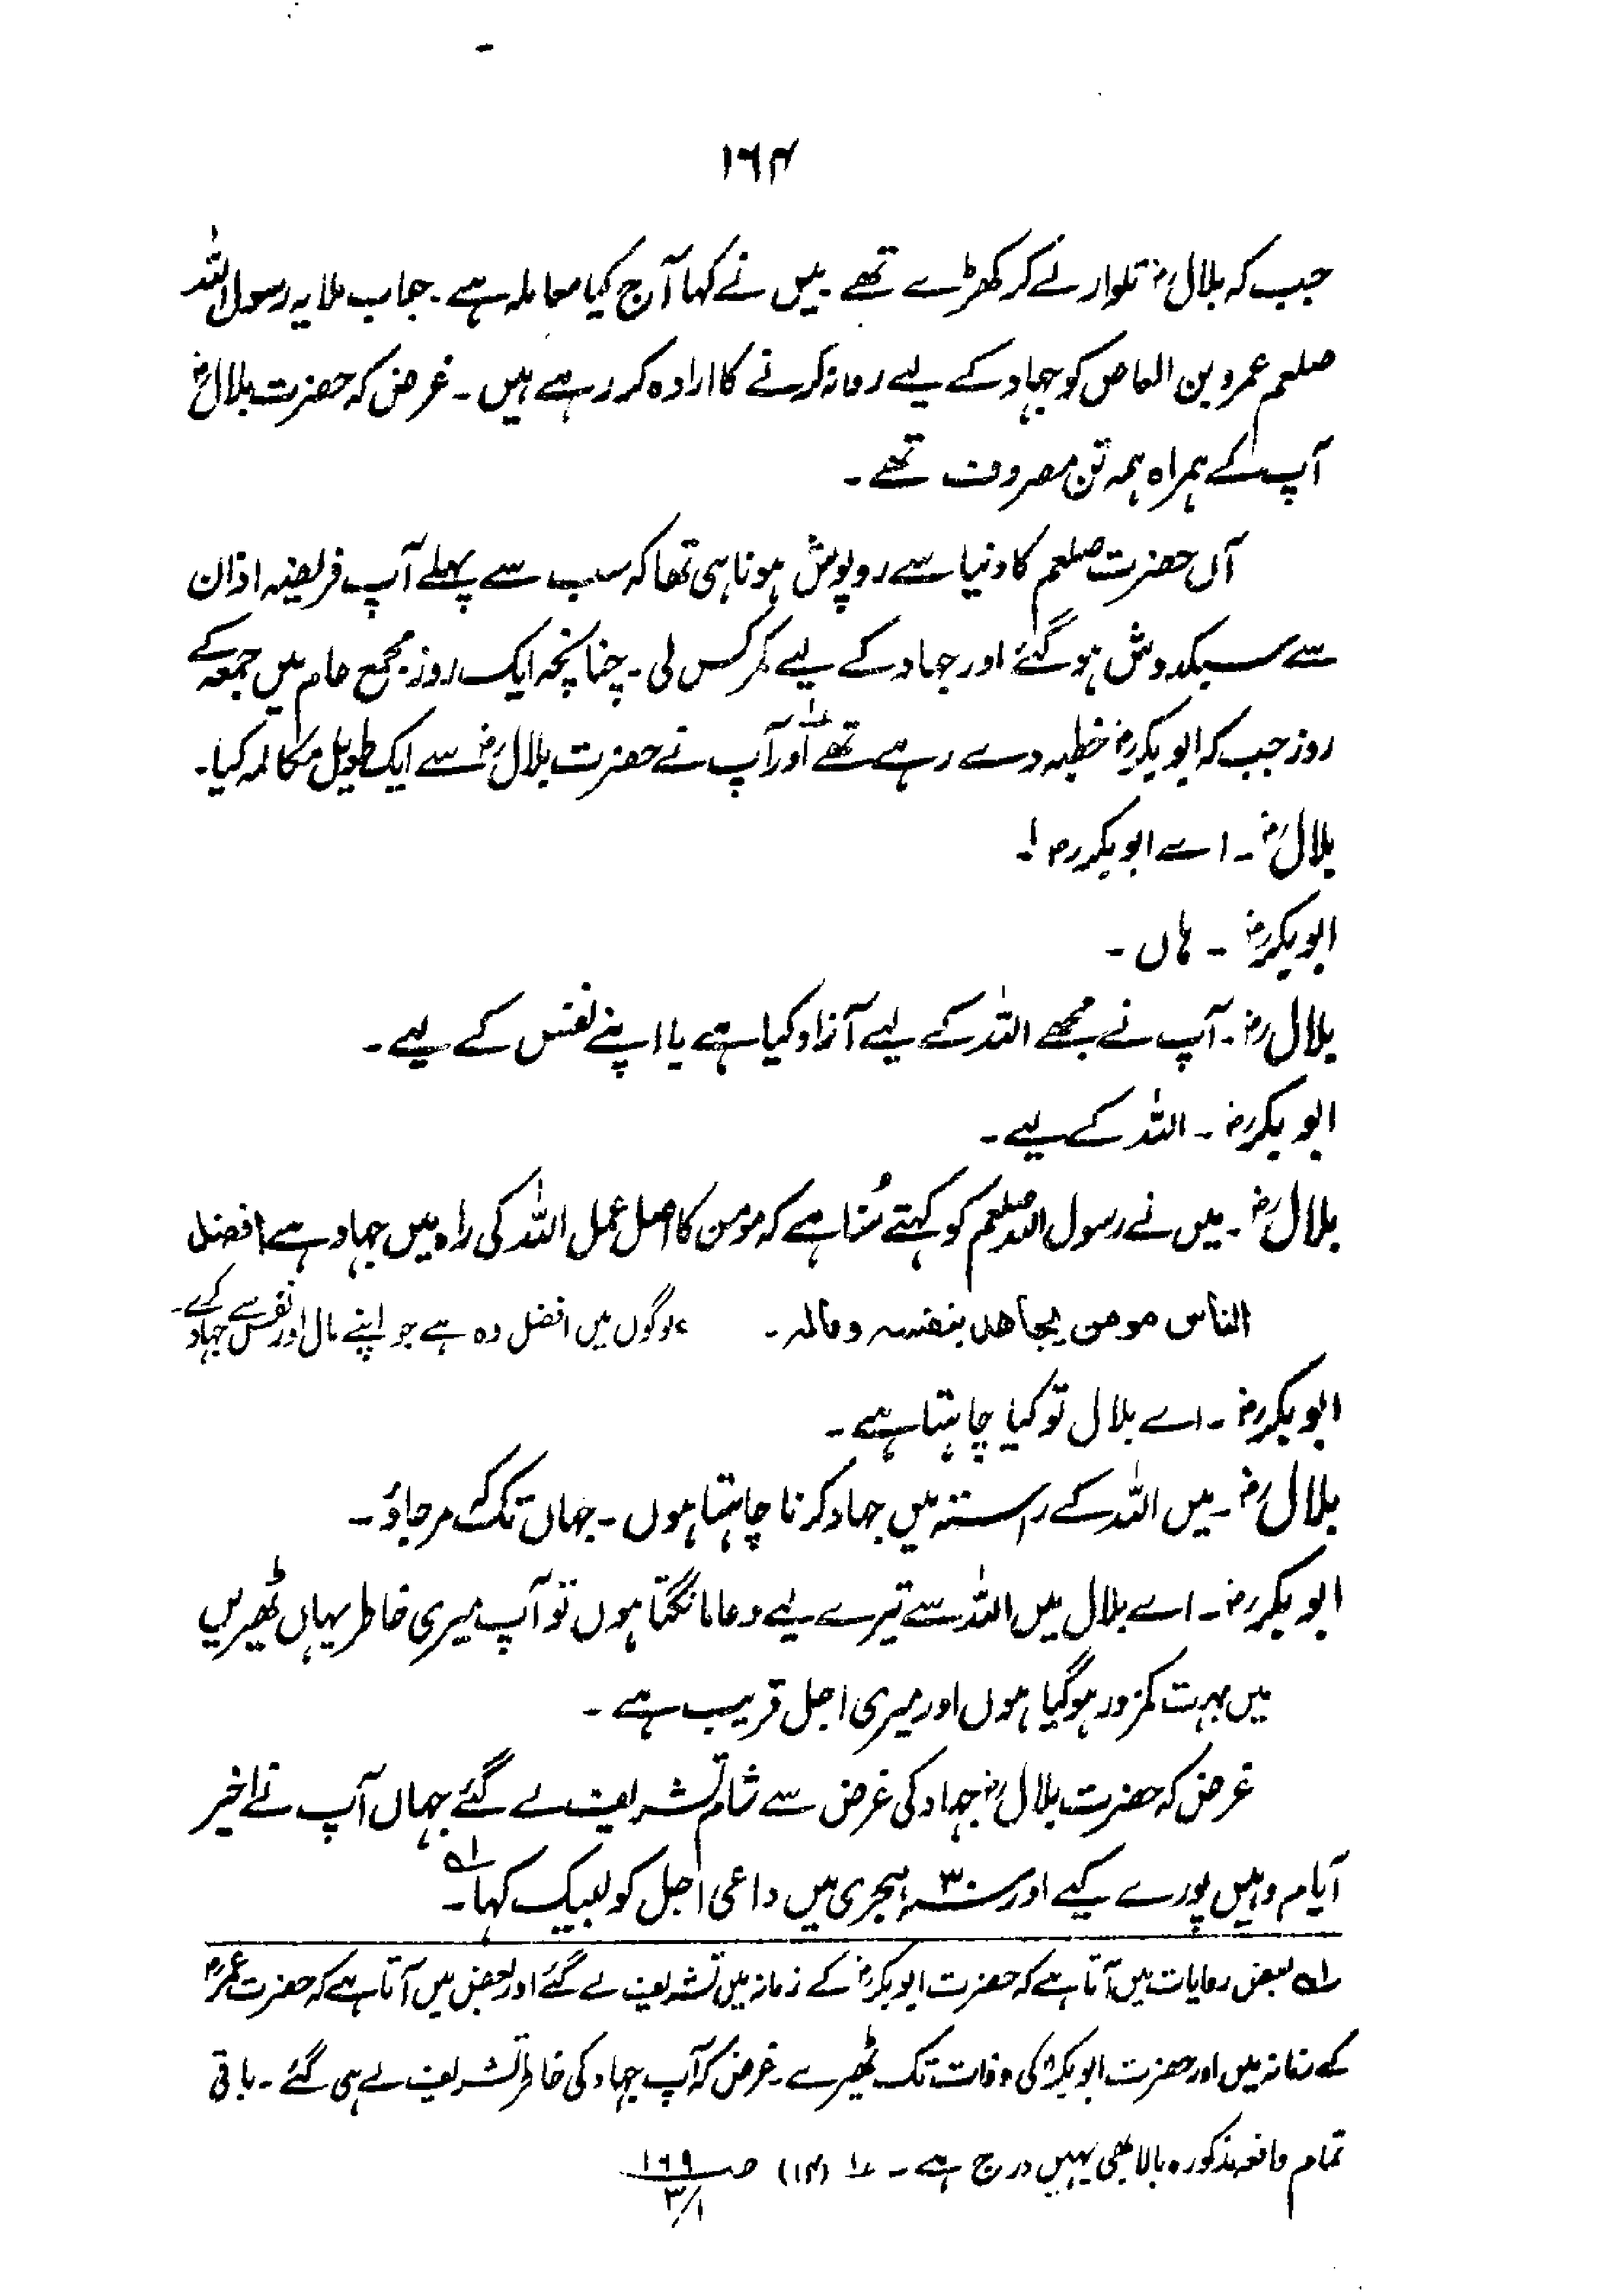 ۱۶۴
جب کہ بلالؓ تلوار لے کر کھڑے تھے۔ میں نے کہا آج کیا معاملہ ہے۔ جواب ملا یہ رسول اللہ
صلعم عمرو بن العاص کو جہاد کے لیے روانہ کرنے کا ارادہ کر رہے ہیں۔ غرض کہ حضرت بلالؓ
آپ کے ہمراہ ہمہ تن مصروف تھے۔
آں حضرت صلعم کا دنیا سے روپوش ہونا ہی تھا کہ سب سے پہلے آپ فریضہ اذان
سے سبکدوش ہو گئے اور جہاد کے لیے کمر کس لی۔ چنانچہ ایک روز مجمع عام میں جمعہ کے
روز جب کہ ابوبکرؓ خطبہ دے رہے تھے ۱؎ اور آپ نے حضرت بلالؓ سے ایک طویل مکالمہ کیا۔
بلالؓ۔ اے ابوبکرؓ !۔
ابوبکرؓ ۔ ہاں ۔
بلالؓ۔ آپ نے مجھے اللہ کے لیے آزاد کیا ہے یا اپنے نفس کے لیے۔
ابوبکرؓ ۔ اللہ کے لیے۔
بلالؓ۔ میں نے رسول اللہ صلعم کو کہتے سُنا ہے کہ مومن کا اصل عمل اللہ کی راہ میں جہاد ہے افضل
الناس مومن یجاھد بنفسہ ومالہ۔ لوگوں میں افضل وہ ہے جو اپنے مال اور نفس سے جہاد کرے۔
ابوبکرؓ ۔ اے بلال تو کیا چاہتا ہے۔
بلالؓ۔ میں اللہ کے راستہ میں جہاد کرنا چاہتا ہوں۔ جہاں تک کہ مرجاؤ۔
ابوبکرؓ ۔ اے بلال میں اللہ سے تیرے لیے دعا مانگتا ہوں تو آپ میری خاطر یہاں ٹھیریں
میں بہت کمزور ہو گیا ہوں اور میری اجل قریب ہے۔
غرض کہ حضرت بلالؓ جہاد کی غرض سے شام تشریف لے گئے جہاں آپ نے اخیر
آیام وہیں پورے کیے اور سنہ ۳۰ ہجری میں داعی اجل کو لبیک کہا۔ ۱؎
۱؎ بعض روایات میں آتا ہے کہ حضرت ابوبکرؓ کے زمانہ میں تشریف لے گئے اور بعض میں آتا ہے کہ حضرت عمرؓ
کے زمانہ میں اور حضرت ابوبکرؓ کی وفات تک ٹھیرے۔ غرض کہ آپ جہاد کی خاطر تشریف لے ہی گئے۔ باقی
تمام واقعہ مذکورہ بالا بھی یہیں درج ہے۔ ۱؎ (۱۴) صـ ۱۶۹
۳/۱